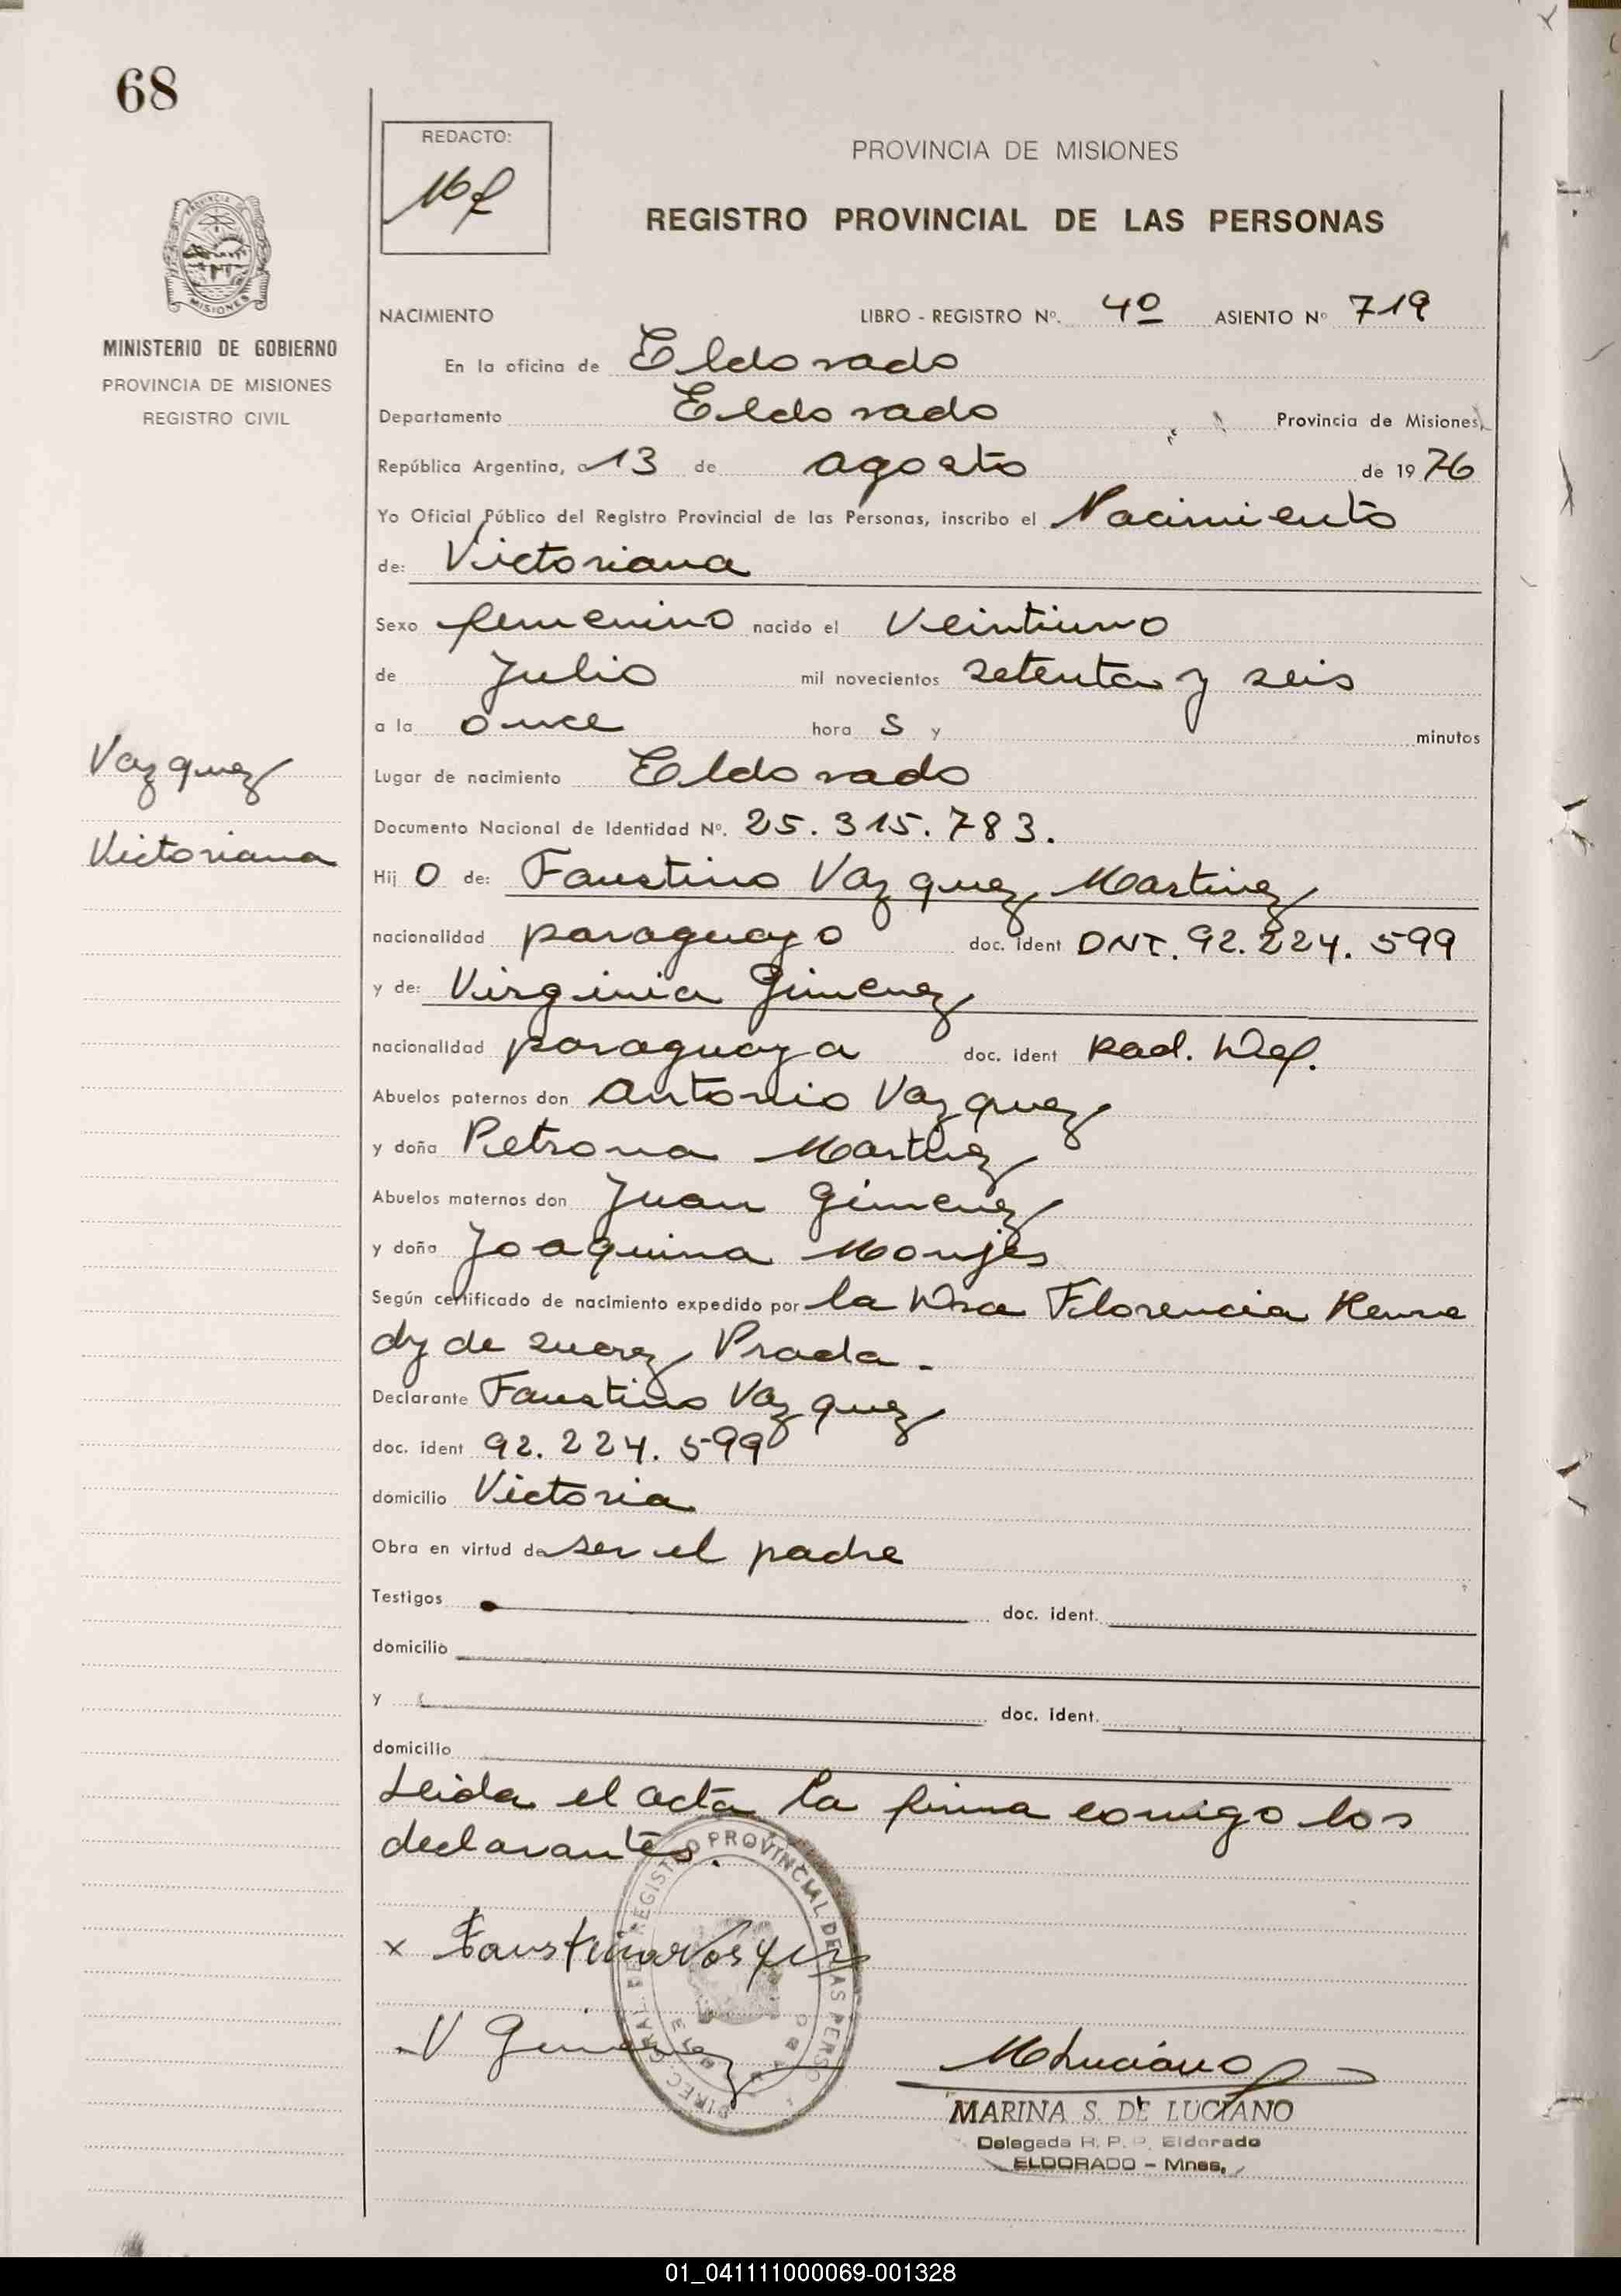 68
REDACTO:
PROVINCIA DE MISIONES
REGISTRO PROVINCIAL DE LAS PERSONAS
PROVINCIA DE MISIONES
MINISTERIO DE GOBIERNO
PROVINCIA DE MISIONES
REGISTRO CIVIL
NACIMIENTO LIBRO - REGISTRO Nº. 4º ASIENTO Nº 719
En la oficina de Eldorado
Departamento Eldorado Provincia de Misiones,
República Argentina, a 13 de agosto de 1976
Yo Oficial Público del Registro Provincial de las Personas, inscribo el Nacimiento
de: Victoriana
Sexo femenino nacido el Veintiuno
de Julio mil novecientos setenta y seis
a la once hora s y minutos
Vazquez
Victoriana
Lugar de nacimiento Eldorado
Documento Nacional de Identidad Nº. 25.315.783.
Hij o de: Faustino Vazquez Martinez
nacionalidad paraguayo doc. ident DNI. 92.224.599
y de: Virginia Gimenez
nacionalidad paraguaya doc. ident Rad. Def.
Abuelos paternos don Antonio Vazquez
y doña Petrona Martinez
Abuelos maternos don Juan Gimenez
y doña Joaquina Monjes
Según certificado de nacimiento expedido por la Dra Florencia Kenne
dy de Suarez Prada.
Declarante Faustino Vazquez
doc. ident 92.224.599
domicilio Victoria
Obra en virtud de ser el padre
Testigos doc. ident.
domicilio
y doc. ident.
domicilio
Leida el acta la firma comigo los
declarantes.
DIREC. GRAL. DE REGISTRO PROVINCIAL DE LAS PERSO
x Faustino Vasquez
V Gimenez
MLuciano
MARINA S. DE LUCIANO
Delegada R. P. P. Eldorado
ELDORADO - Mnes.
01_041111000069-001328